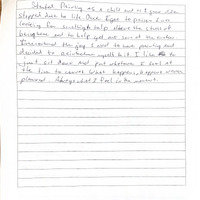 Started Painting as a child and as I grew older
stopped due to life. Once I got to prison I was
looking for something to help relieve the stress of
being here and to help get out some of the emotion
I remembered the joy I used to have painting and
decided to reintroduce myself to it. I like to
just sit down and put whatever I feel at
the time to canvas. What happens, happens never
planned. Always what I feel in the moment.